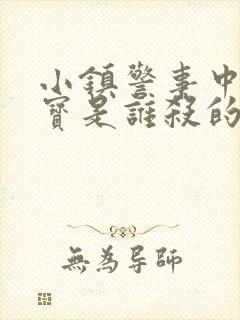 小鎮警事中
寶是誰殺的
無為導師